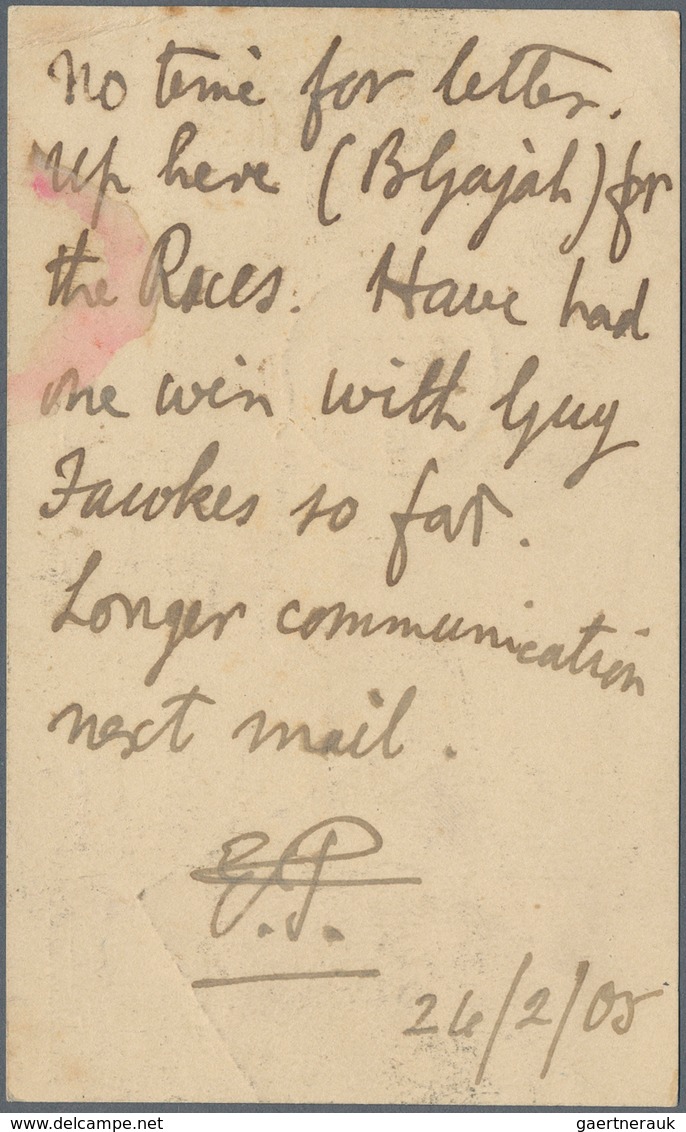 No time for letter.
Up here (B Gajah) for
the Races. Have had
one win with Guy
Fawkes so far.
Longer communication
next mail.
E.P.
26/2/05
gaertnerauk